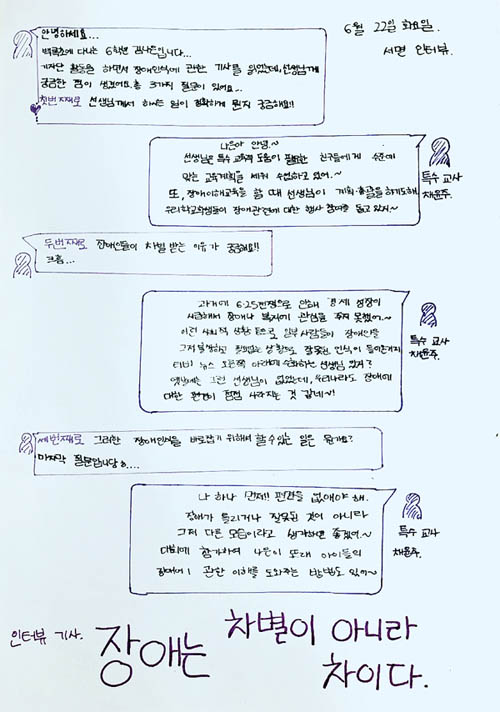 6월 22일 화요일.
서면 인터뷰.
안녕하세요...
벽록초에 다니는 6학년 김나은입니다...
기자단 활동을 하면서 장애인식에 관한 기사를 읽었는데, 선생님께
궁금한 점이 생겼어요. 총 3가지 질문이 있어요...
첫번째로 선생님께서 하시는 일이 정확하게 뭔지 궁금해요!!
나은아 안녕.~
선생님은 특수 교육적 도움이 필요한 친구들에게 수준에
맞는 교육계획을 세워 수업하고 있어.~
또, 장애이해교육을 할 때 선생님이 계획·총괄을 하기도 해.
우리학교학생들이 장애관련에 대한 행사 참여를 돕고 있지~
특수 교사
채윤주.
두번째로 장애인들이 차별 받는 이유가 궁금해요!!
흐흠...
과거에 6.25전쟁으로 인해 경제 성장이
시급해서 장애나 복지에 관심을 주지 못했어.~
이런 사회적 상황 등으로 일부 사람들이 장애인을
그저 불쌍하고 힘없는 상황으로 잘못된 인식이 들어온거지
티비 뉴스 오른쪽 아래에 수화하는 선생님 있지?
옛날에는 그런 선생님이 없었는데, 우리나라도 장애에
대한 편견이 점점 사라지는 것 같네~!
특수 교사
채윤주.
세번째로 그러한 장애인식을 바로잡기 위해서 할 수 있는 일은 뭘까요?
마지막 질문입니당ㅎ....
나 하나 먼저!! 편견을 없애야 해.
장애가 틀리거나 잘못된 것이 아니라
그저 다른 모습이라고 생각하면 좋겠어.~
대회에 참가하여 나은이 또래 아이들의
장애에 관한 이해를 도와주는 방법도 있어~
특수 교사
채윤주.
인터뷰 기사.
장애는 차별이 아니라
차이다.